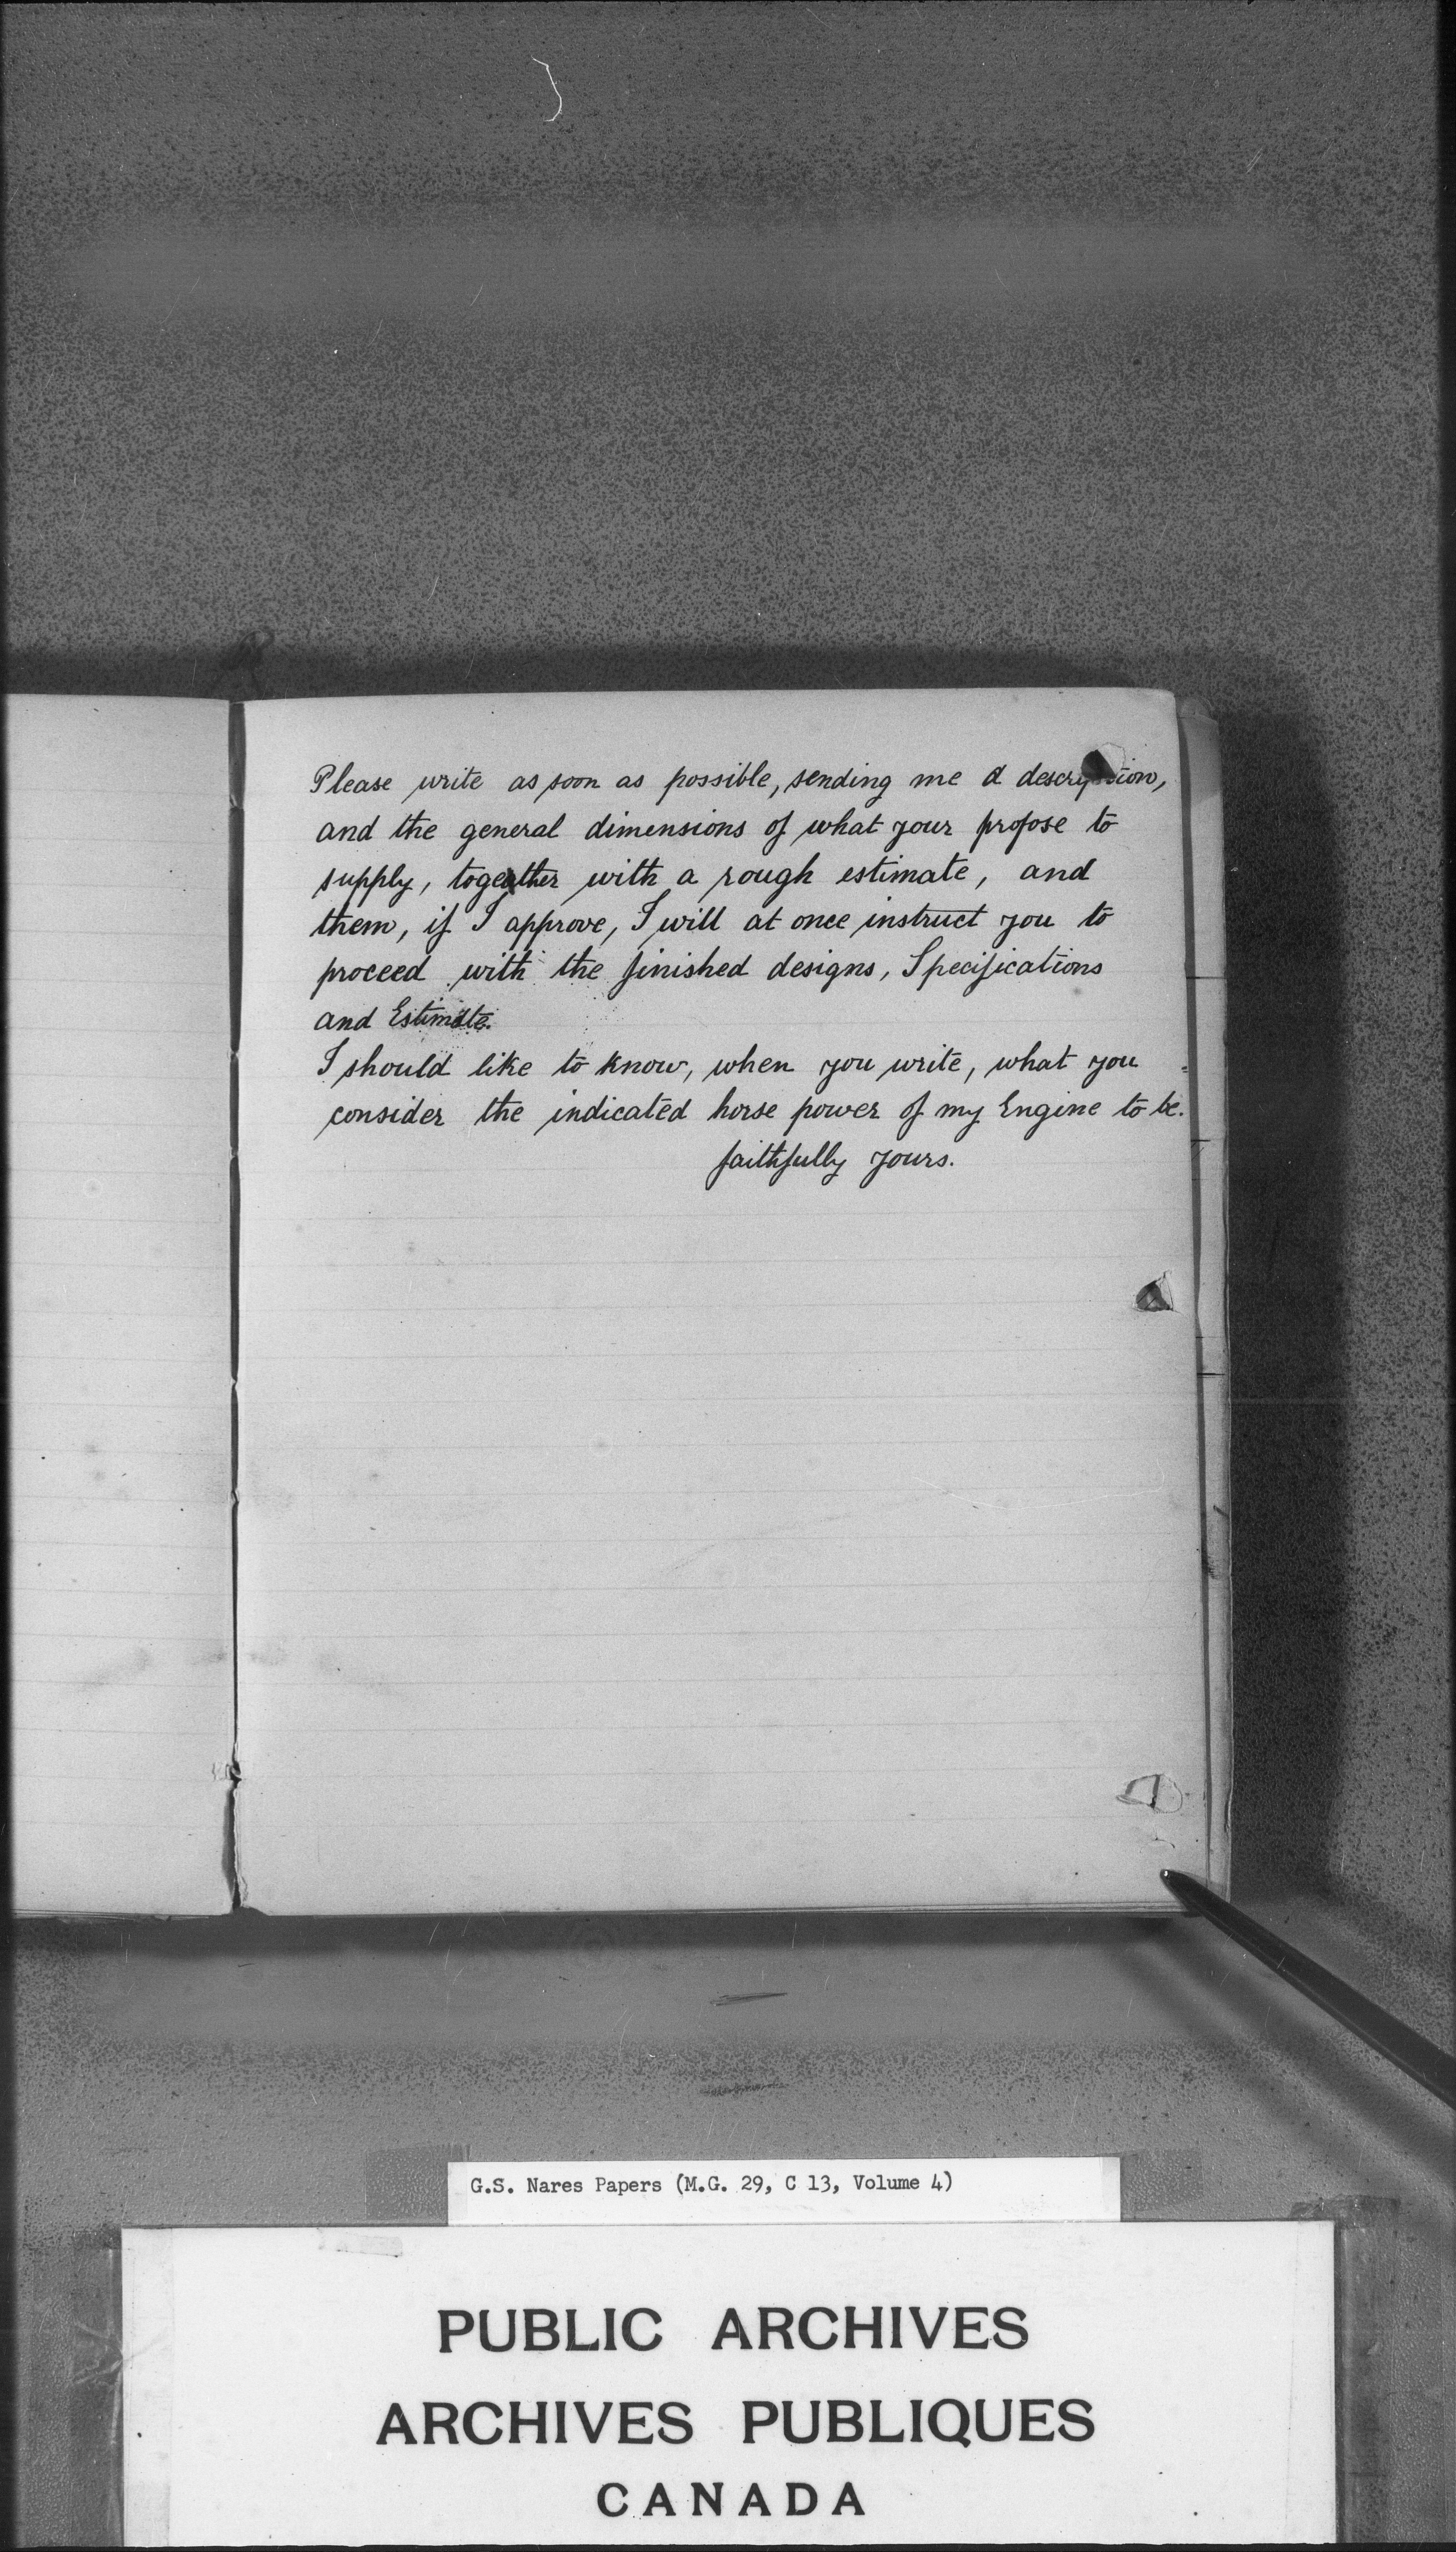 Please write as soon as possible, sending me a description,
and the general dimensions of what your propose to
supply, together with a rough estimate, and
them, if I approve, I will at once instruct you to
proceed with the finished designs, Specifications
and Estimate.
I should like to know, when you write, what you
consider the indicated horse power of my Engine to be.
faithfully yours.
G.S. Nares Papers (M.G. 29, C 13, Volume 4)
PUBLIC ARCHIVES
ARCHIVES PUBLIQUES
CANADA